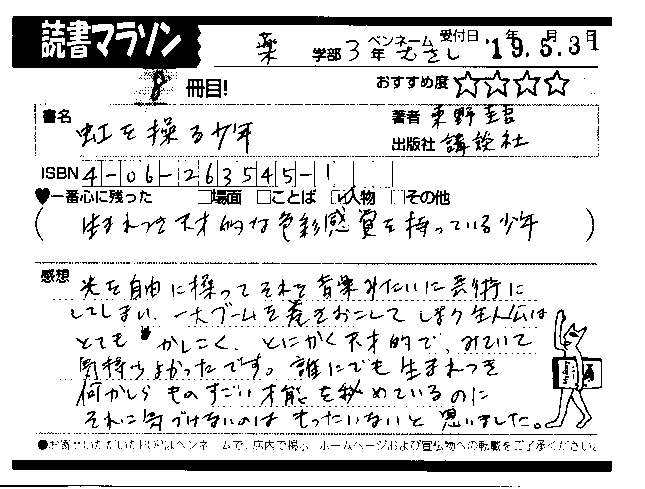 読書マラソン
薬 学部 3年 ペンネーム むさし 受付日 '19年5月31日
8 冊目! おすすめ度 ☆☆☆☆
書名 虹を操る少年
著者 東野圭吾
出版社 講談社
ISBN 4-06-263545-1
♥一番心に残った □場面 □ことば ☑人物 □その他
( 生まれつき天才的な色彩感覚を持っている少年 )
感想 光を自由に操ってそれを音楽みたいに芸術に
してしまい、一大ブームを巻きおこしてしまう主人公は
とても かしこく、とにかく天才的で、みていて
気持ちよかったです。誰にでも生まれつき
何かしら ものすごい才能を秘めているのに
それに気づけないのは もったいないと思いました。
●お寄せいただいたPOPはペンネームで、店内で掲示、ホームページおよび宣伝物への転載をご了承ください。